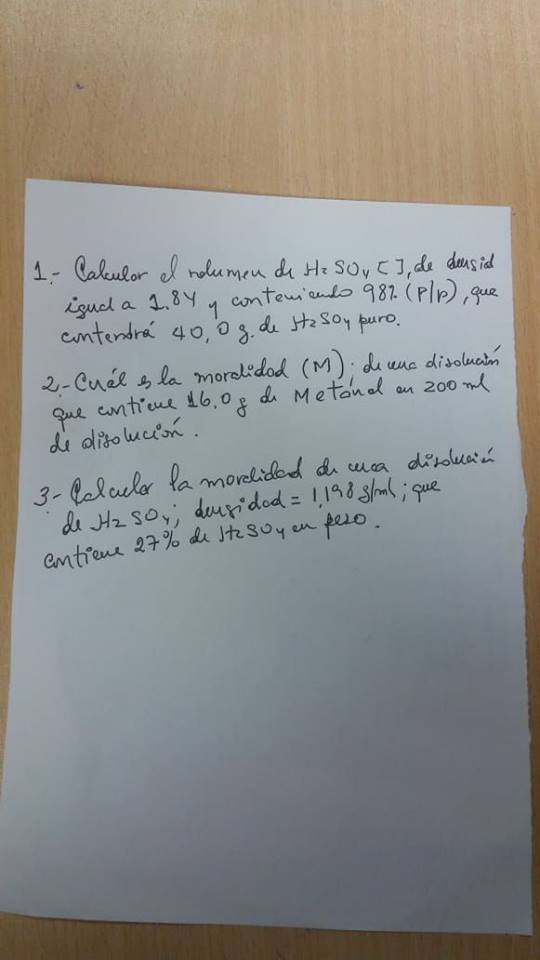 1.- Calcular el volumen de H2SO4 [ ], de densid
igual a 1.84 y conteniendo 98% (P/p), que
contendrá 40,0 g. de H2SO4 puro.
2.- Cuál es la moralidad (M); de una disolución
que contiene 16,0 g de Metanol en 200 ml
de disolución.
3.- Calcular la moralidad de una disolución
de H2SO4; densidad = 1,198 g/ml; que
contiene 27% de H2SO4 en peso.